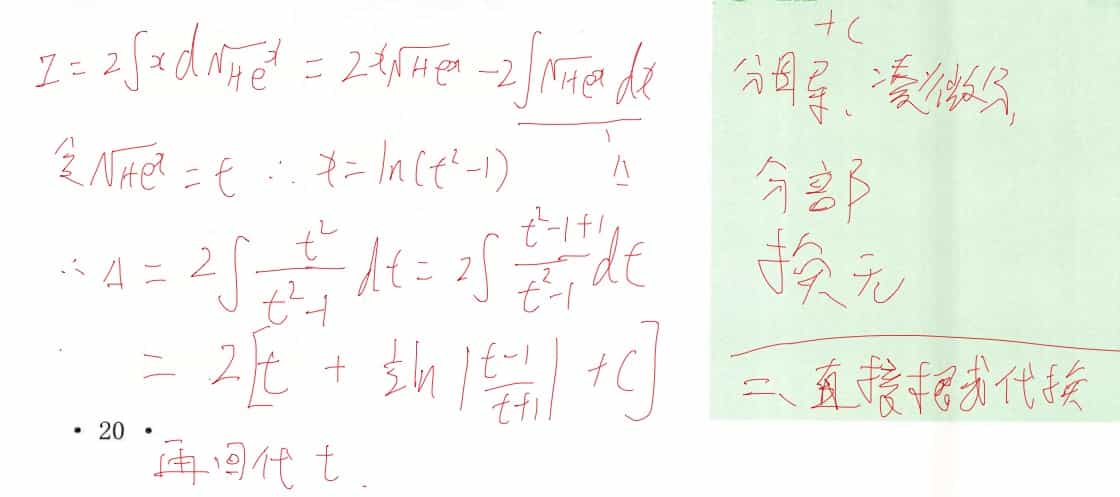 I = 2∫x d√(1+e^x) = 2x√(1+e^x) - 2∫√(1+e^x) dx
△
令√(1+e^x) = t ∴ x = ln(t²-1)
∴ △ = 2∫ t²/(t²-1) dt = 2∫ (t²-1+1)/(t²-1) dt
= 2[t + ½ ln|(t-1)/(t+1)| + C]
• 20 •
再回代 t.
+C
分母导、凑微分,
分部
换元
二、直接根式代换